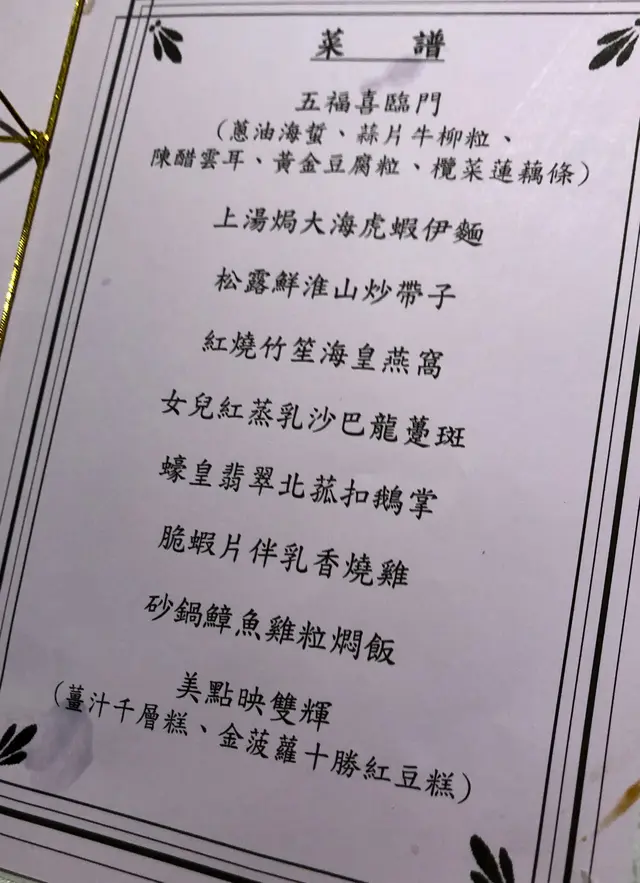 菜 譜
五福喜臨門
(蔥油海蜇、蒜片牛柳粒、
陳醋雲耳、黃金豆腐粒、欖菜蓮藕條)
上湯焗大海虎蝦伊麵
松露鮮淮山炒帶子
紅燒竹笙海皇燕窩
女兒紅蒸乳沙巴龍躉斑
蠔皇翡翠北菰扣鵝掌
脆蝦片伴乳香燒雞
砂鍋鱆魚雞粒燜飯
美點映雙輝
(薑汁千層糕、金菠蘿十勝紅豆糕)